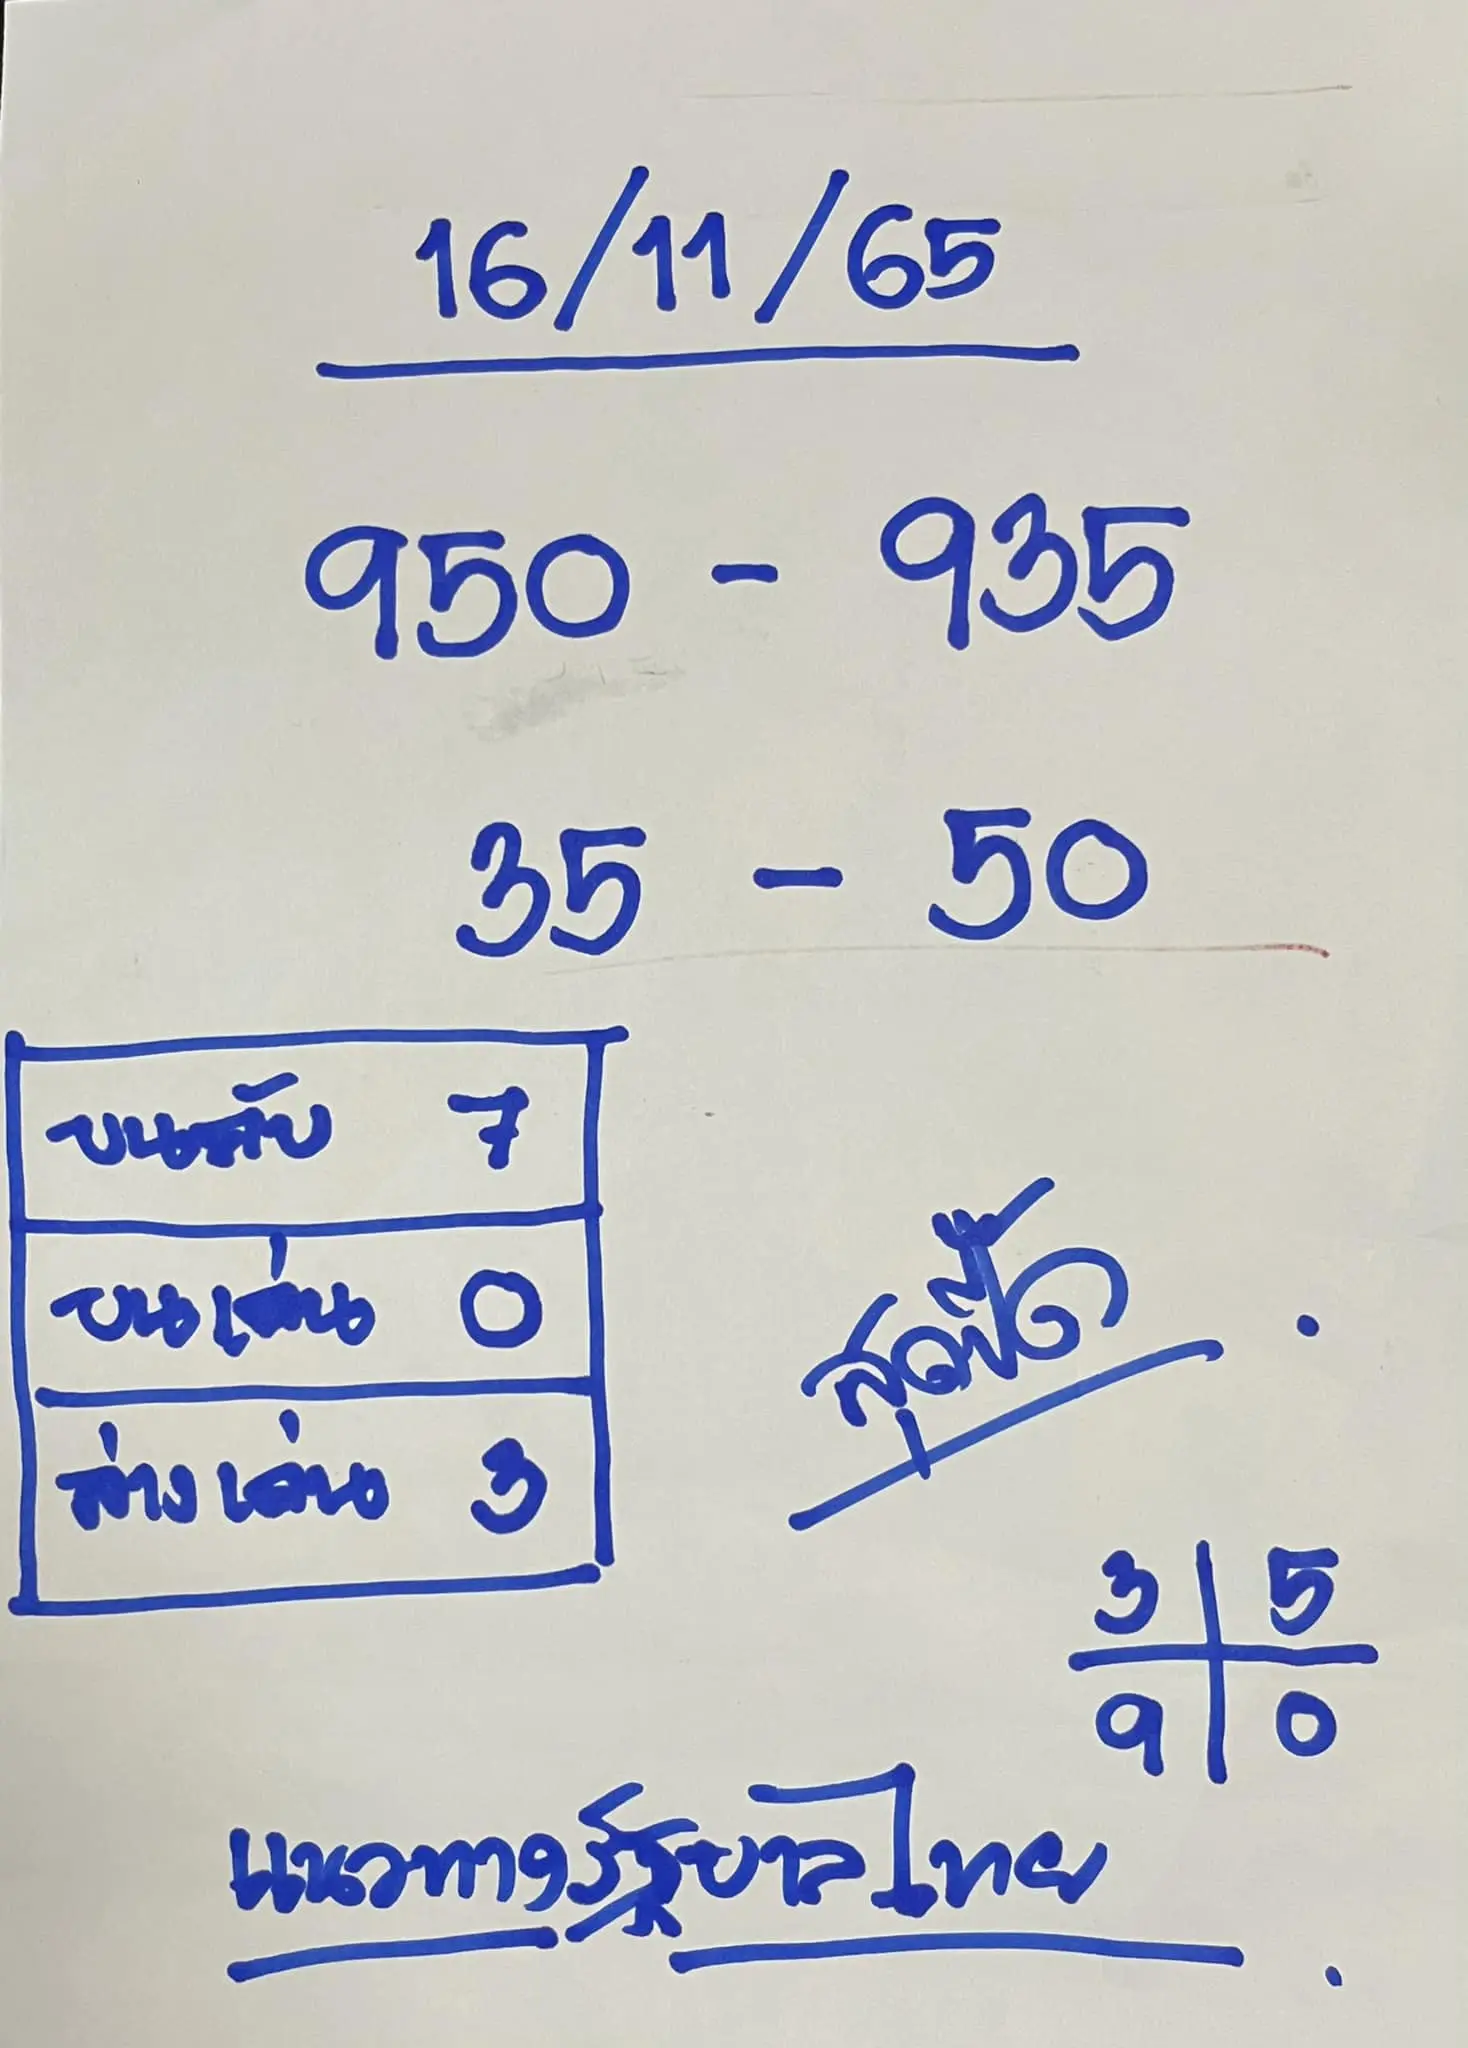 16/11/65
950 - 935
35 - 50
บนดับ 7
บนเด่น 0
ล่างเด่น 3
สุดปี๊ด
3 5
9 0
แนวทางรัฐบาลไทย